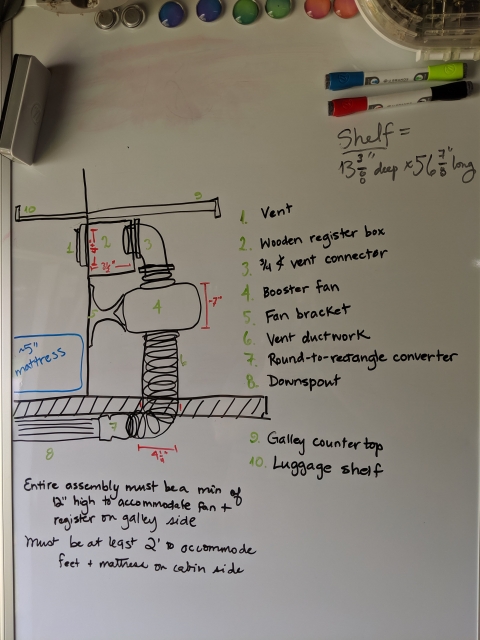 Shelf =
13 3/8" deep × 56 7/8" long
10
9
1
2
3
7½"
4
5
~7"
~5"
mattress
6
7
8
4½"
1. Vent
2. Wooden register box
3. 3/4 ¢ vent connector
4. Booster fan
5. Fan bracket
6. Vent ductwork
7. Round-to-rectangle converter
8. Downspout
9. Galley countertop
10. Luggage shelf
Entire assembly must be a min of
12" high to accommodate fan +
register on galley side
Must be at least 2' to accommode
feet + mattress on cabin side